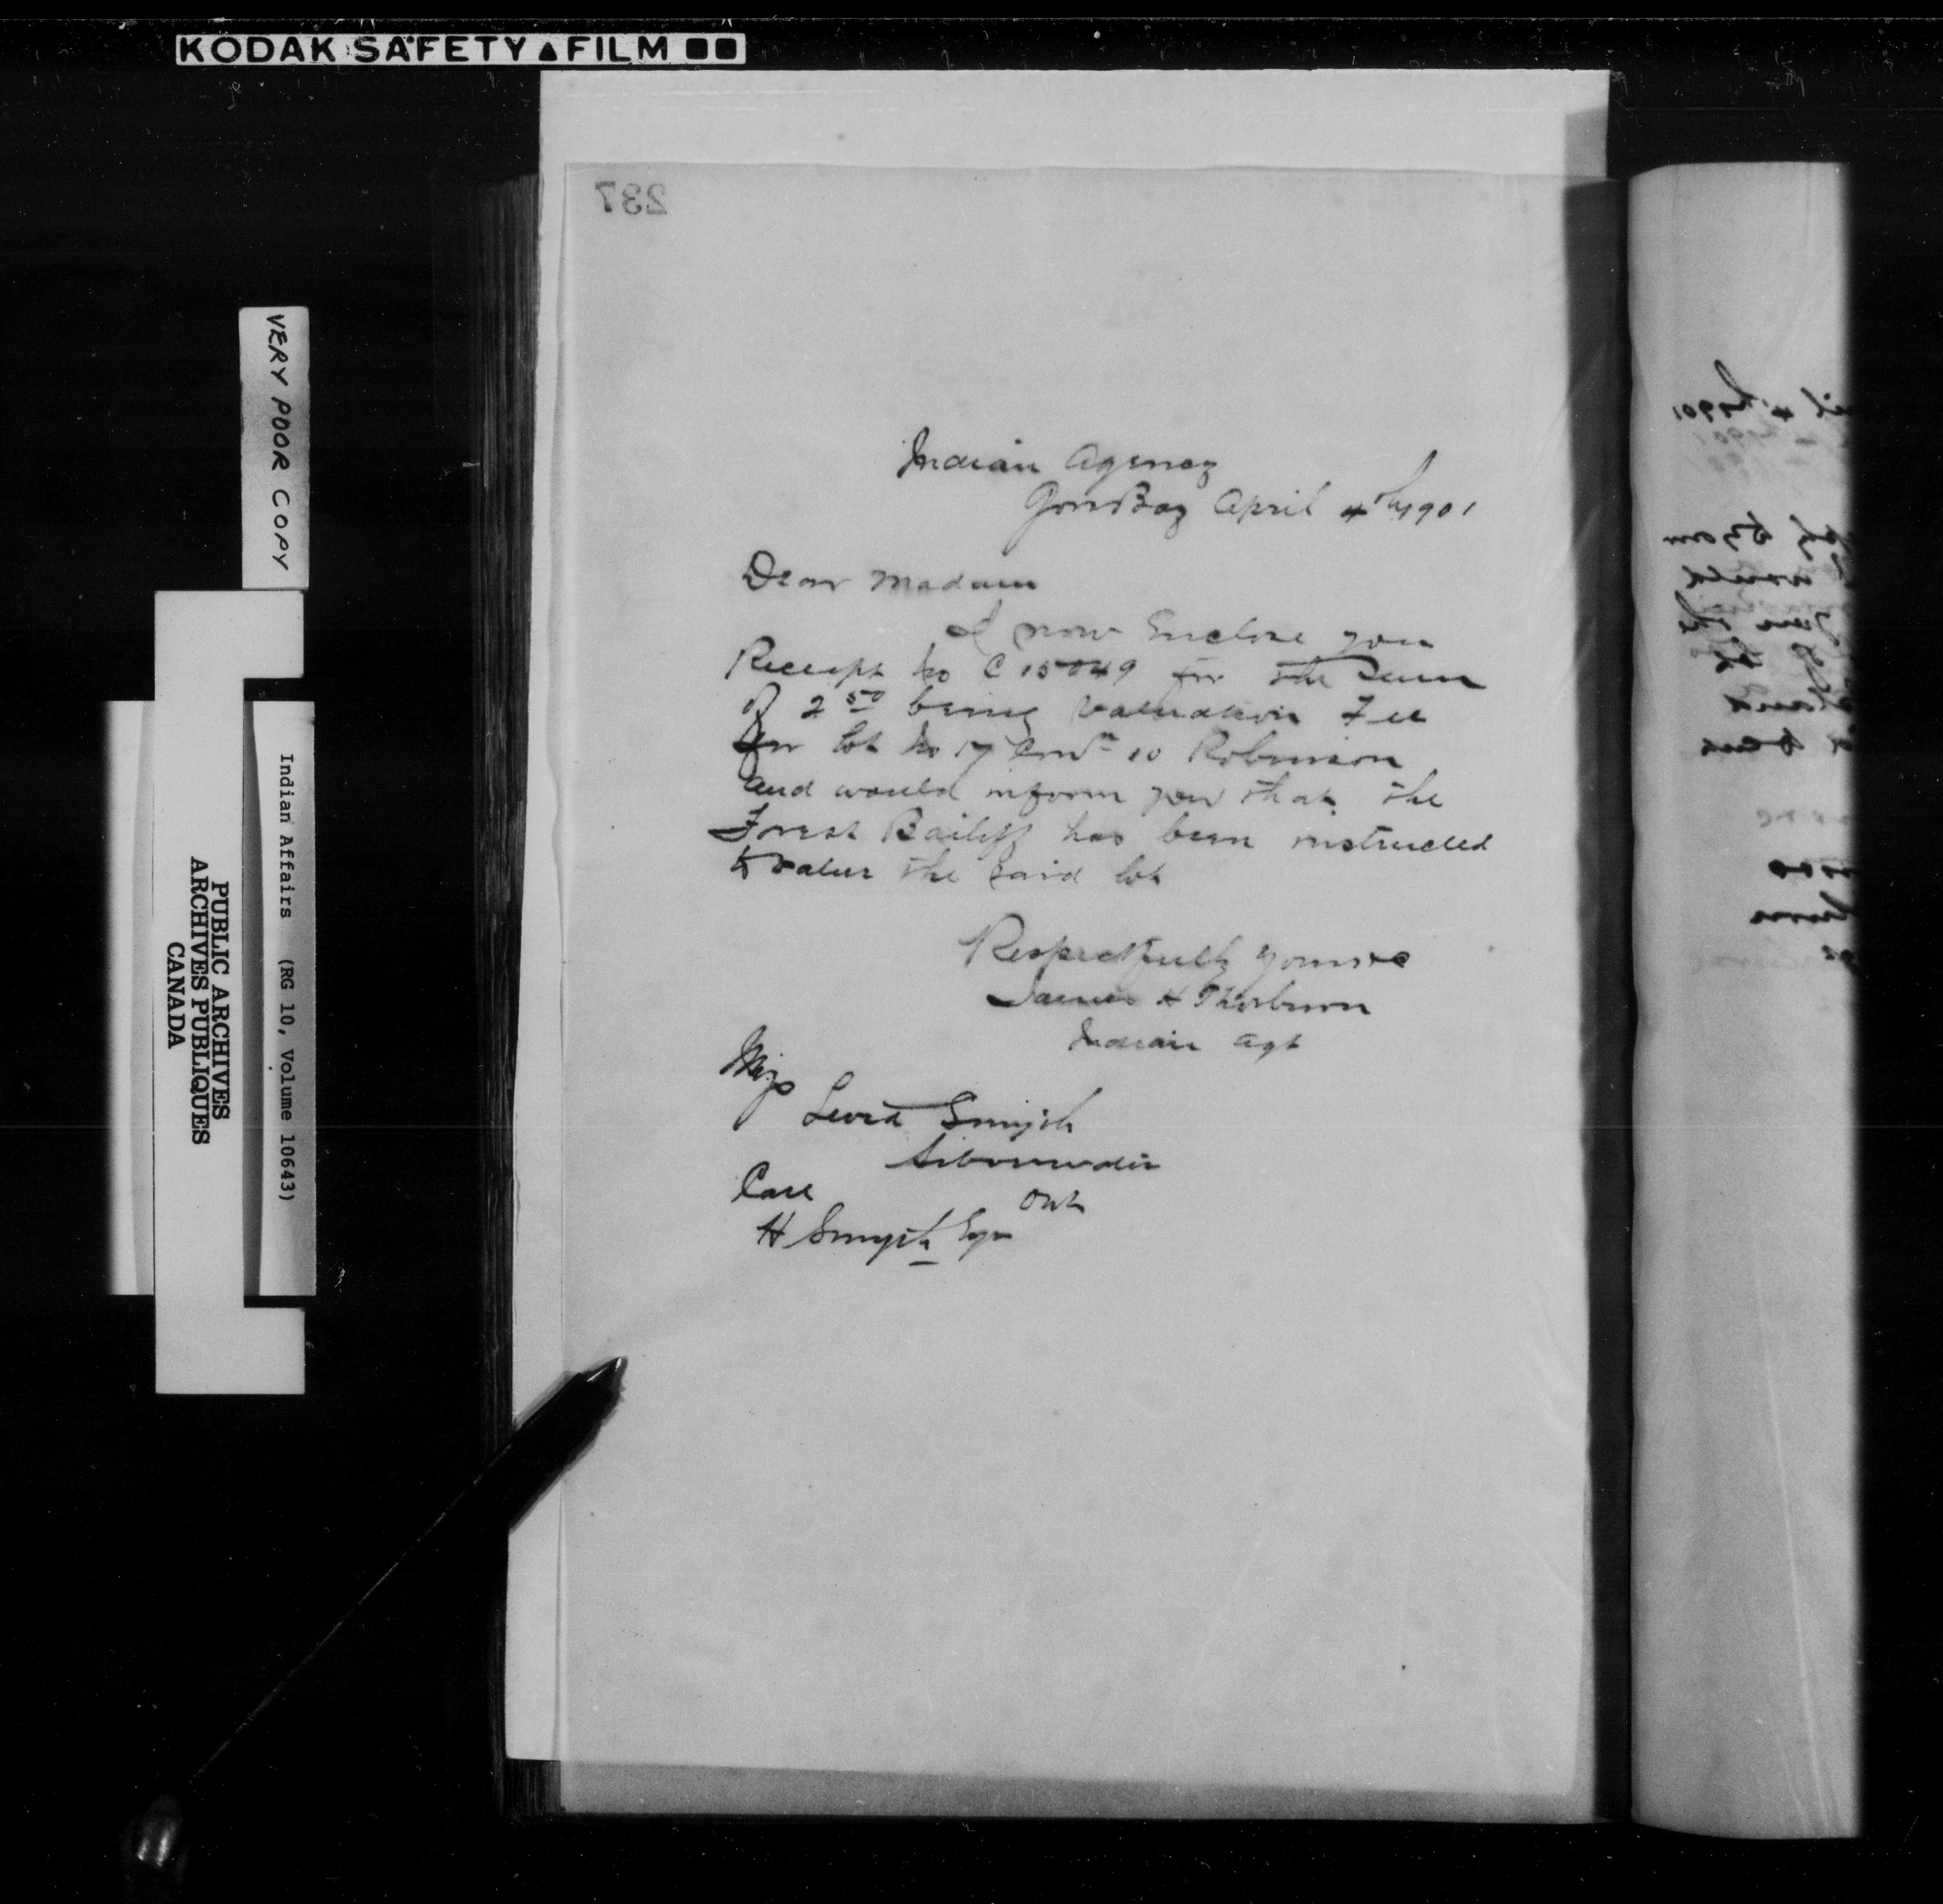 KODAK SAFETY FILM
237
VERY POOR COPY
Indian Affairs (RG 10, Volume 10643)
PUBLIC ARCHIVES
ARCHIVES PUBLIQUES
CANADA
Indian Agency
Gore Bay April 4th 1901
Dear Madam
I now Enclose you
Receipt No C 15049 for the Sum
of 2 50 being Valuation Fee
for lot No 17 Con 10 Robinson
and would inform you that the
Forest Bailiff has been instructed
to value the said lot
Respectfully yours
James H Thorburn
Indian Agt
Miss
Smyth
Ont
Care
H Smyth Esqr